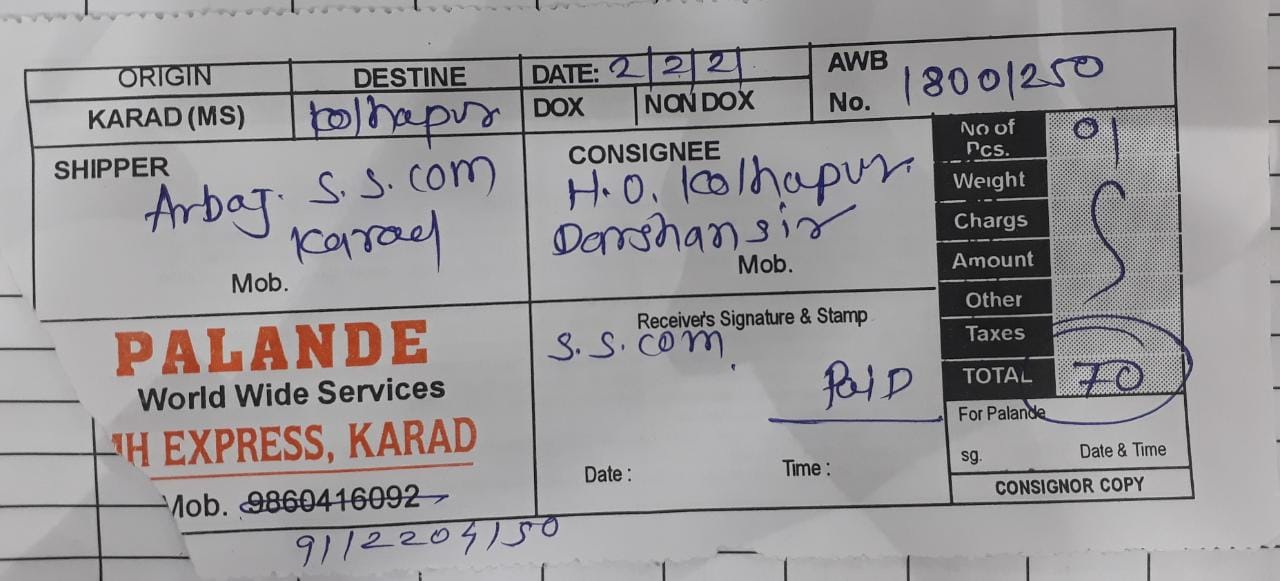 ORIGIN DESTINE DATE: 2/2/21 AWB No. 18001250
KARAD (MS) Kolhapur DOX NON DOX
SHIPPER
Arbaj. S. S. com
Karad
Mob.
CONSIGNEE
H.O. Kolhapur.
Darshan sir
Mob.
No of Pcs. 01
Weight
Chargs
Amount
Other
Taxes
TOTAL 70
PALANDE
World Wide Services
H EXPRESS, KARAD
Mob. 9860416092
9112204150
Receiver's Signature & Stamp
S. S. com.
PaiD
Date : Time :
For Palande
sg. Date & Time
CONSIGNOR COPY